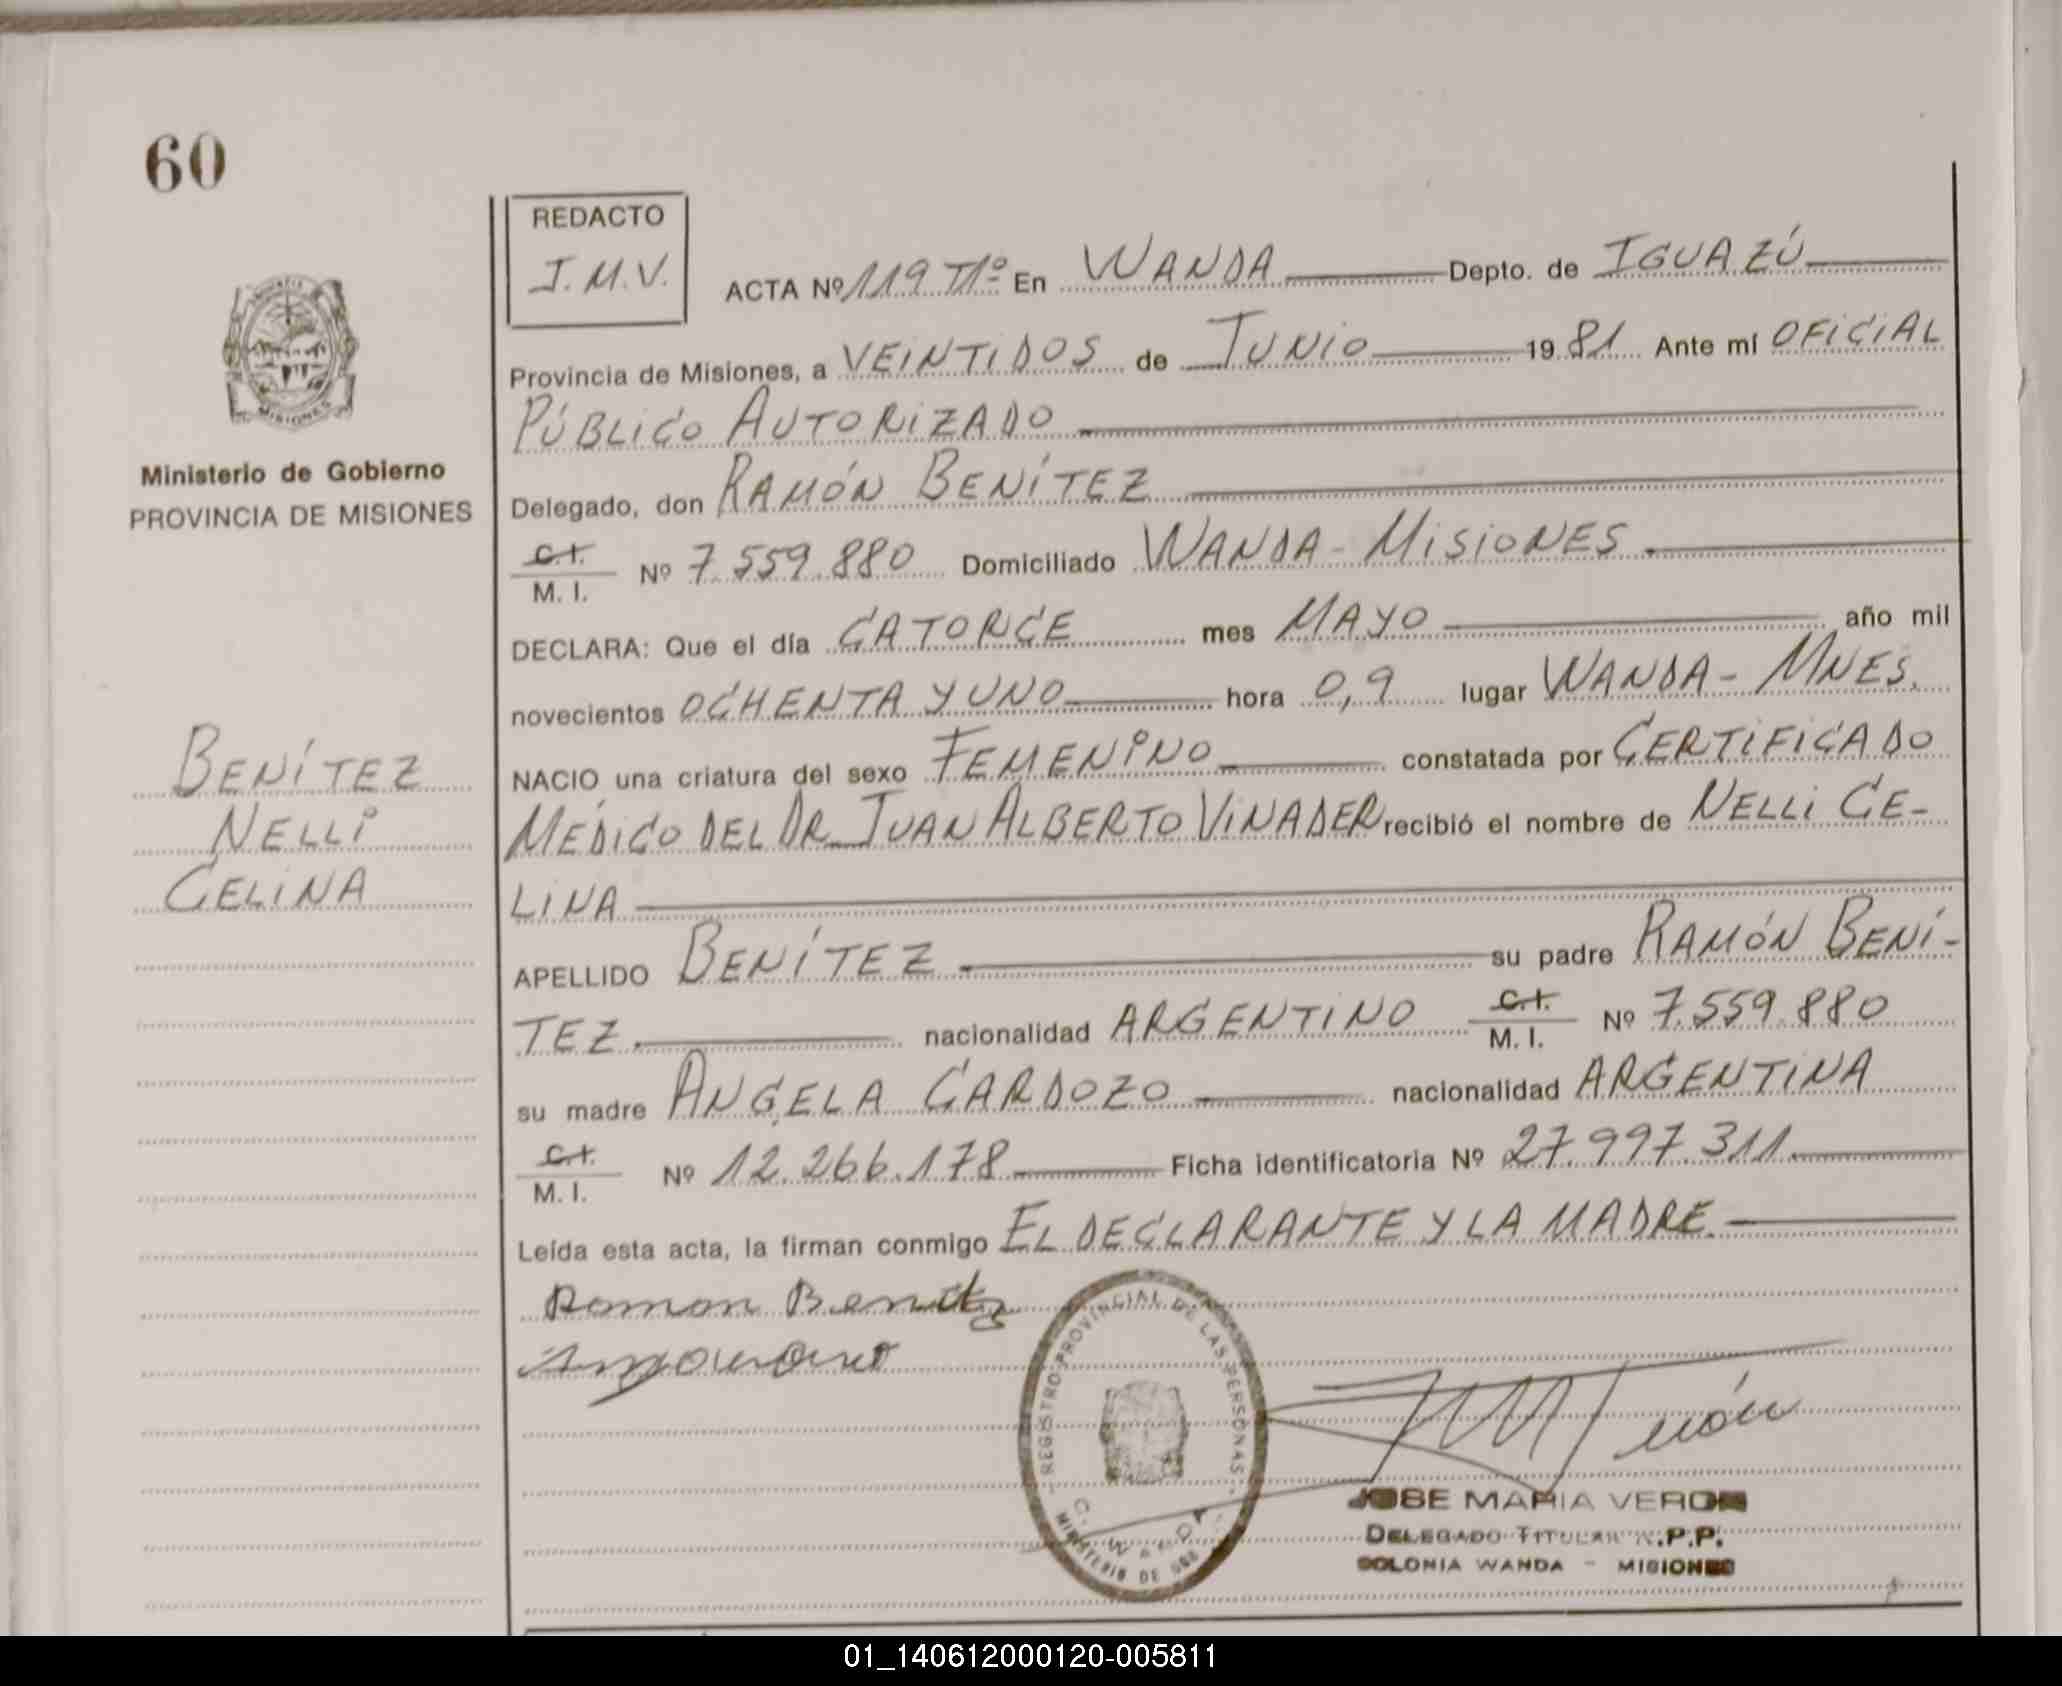 60
REDACTO
J.M.V.
ACTA Nº 119 T1º En WANDA Depto. de IGUAZÚ
Provincia de Misiones, a VEINTIDOS de JUNIO 1981 Ante mí OFICIAL
PÚBLICO AUTORIZADO
Delegado, don RAMÓN BENÍTEZ
C.I.
M. I. Nº 7.559.880 Domiciliado WANDA - MISIONES
DECLARA: Que el día CATORCE mes MAYO año mil
novecientos OCHENTA Y UNO hora 0,9 lugar WANDA - MNES.
NACIO una criatura del sexo FEMENINO constatada por CERTIFICADO
MÉDICO DEL DR. JUAN ALBERTO VINADER recibió el nombre de NELLI CE-
LINA
APELLIDO BENÍTEZ su padre RAMÓN BENÍ-
TEZ. nacionalidad ARGENTINO C.I. M. I. Nº 7.559.880
su madre ANGELA CARDOZO nacionalidad ARGENTINA
C.I.
M. I. Nº 12.266.178 Ficha identificatoria Nº 27.997.311
Leída esta acta, la firman conmigo EL DECLARANTE Y LA MADRE.
Ramon Benitez
REGISTRO PROVINCIAL DE LAS PERSONAS
WANDA
MINISTERIO DE GOB
JOSE MARIA VERON
DELEGADO TITULAR R.P.P.
COLONIA WANDA - MISIONES
MISIONES
Ministerio de Gobierno
PROVINCIA DE MISIONES
BENÍTEZ
NELLI
CELINA
01_140612000120-005811